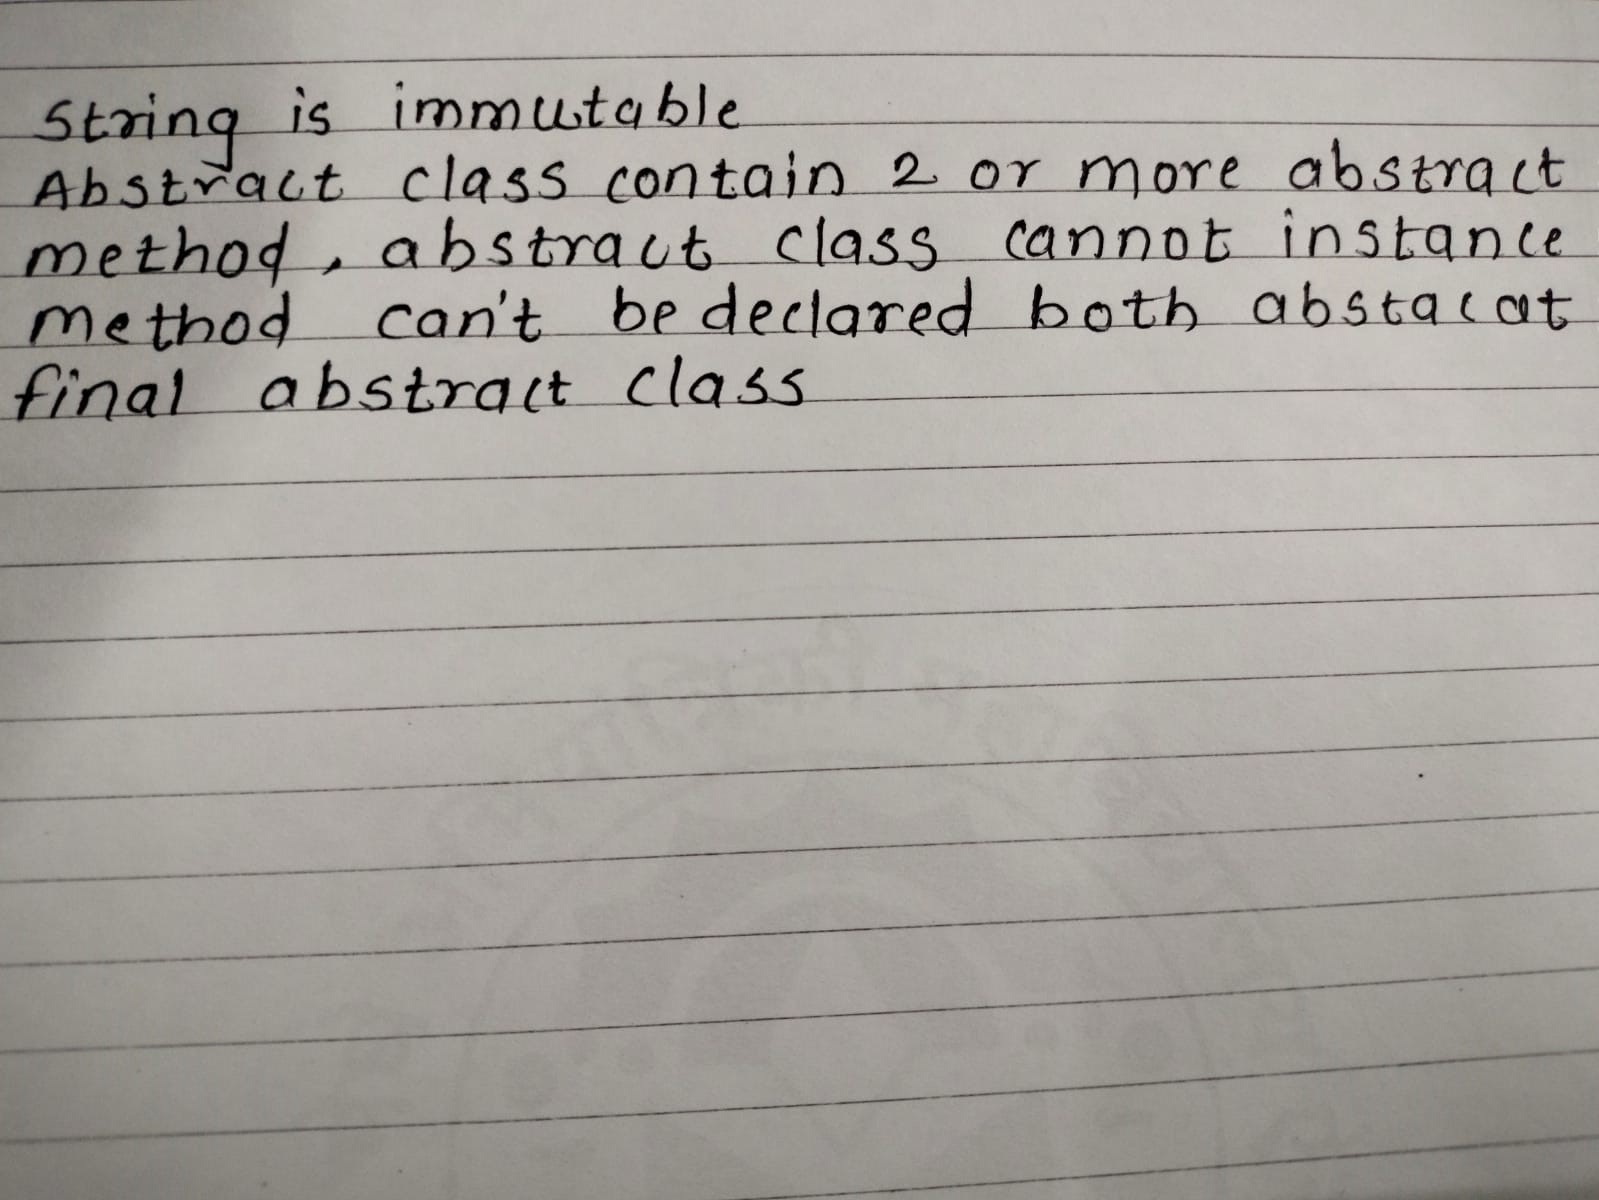 String is immutable
Abstract class contain 2 or more abstract
method, abstract class cannot instance
method can't be declared both abstacat
final abstract class